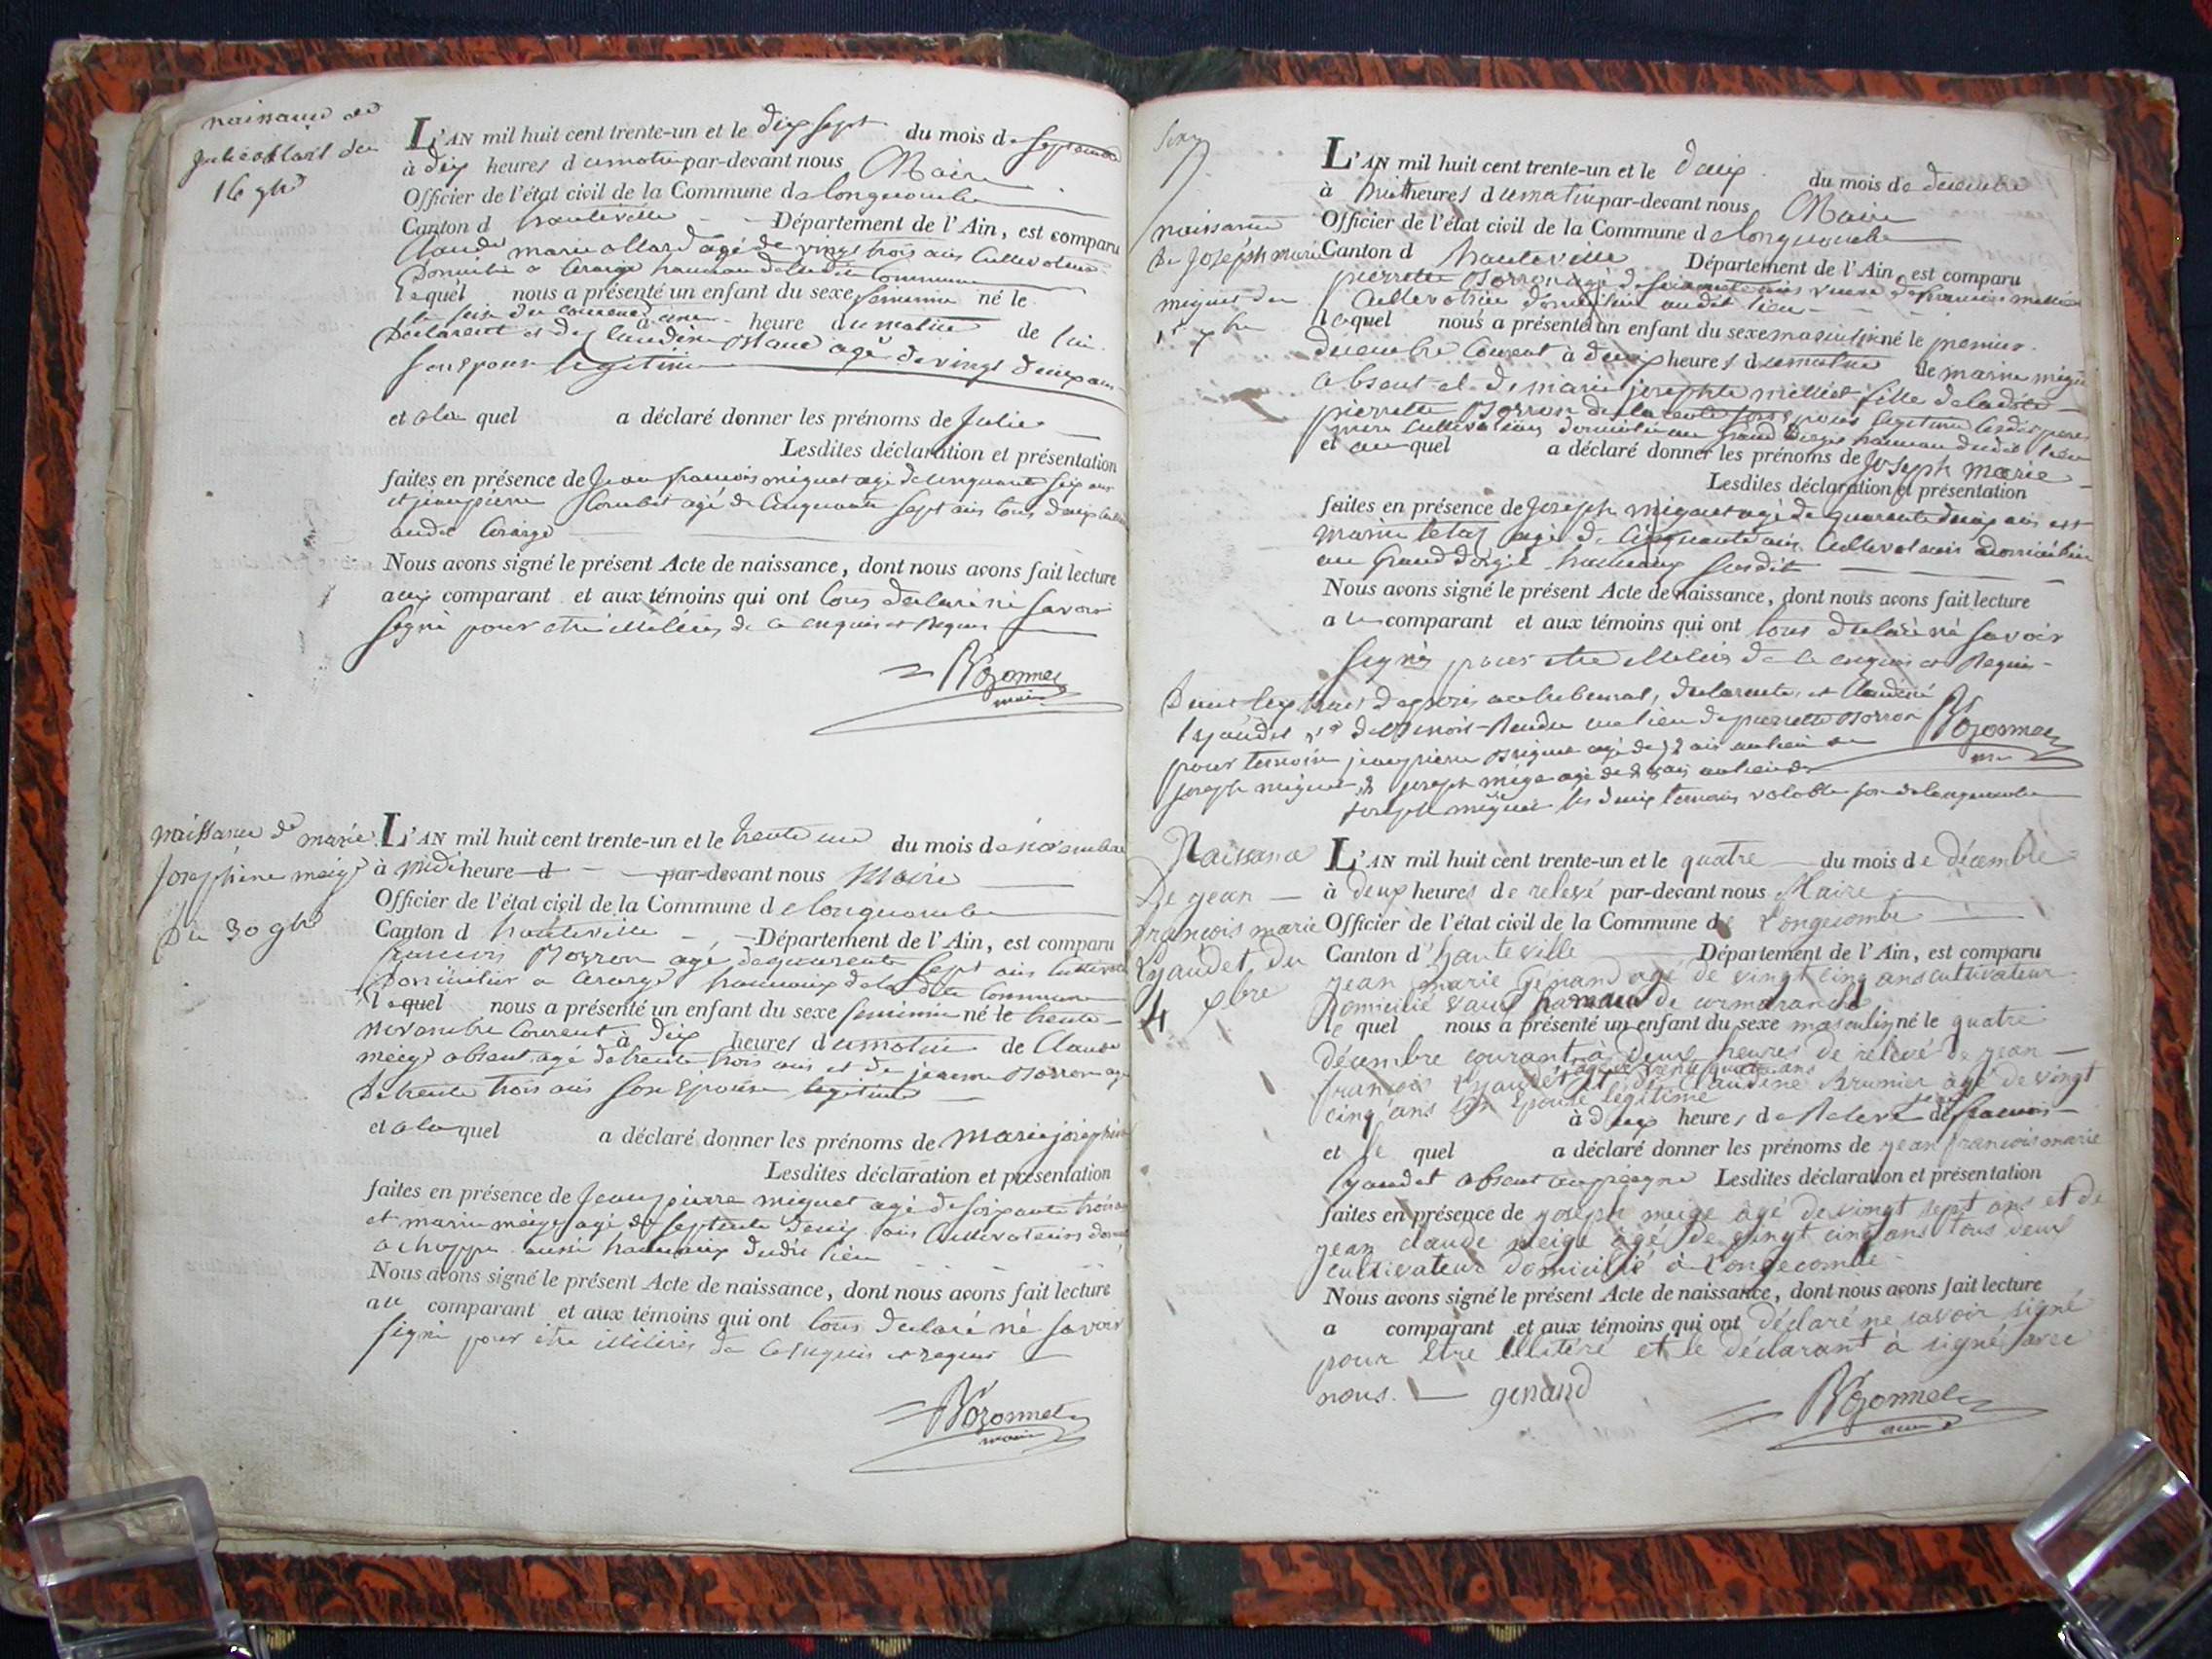 naissance de
julie ollard du
16 9bre
L'AN mil huit cent trente-un et le dix sept du mois de septembre
à dix heures du matin par-devant nous Maire
Officier de l'état civil de la Commune de longecombe
Canton d hauteville Département de l'Ain, est comparu
Claude marie ollard agé de vingt trois ans Cultivateur
Domicilié a hameau de ladite Commune
lequel nous a présenté un enfant du sexe feminin né le
le seize du courant à une heure du matin de lui
Declarent et de Claudine agé de vingt deux ans
son epouse legitime
et a la quel a déclaré donner les prénoms de Julie
Lesdites déclaration et présentation
faites en présence de Jean francois miguet agé de cinquante six ans
et jean pierre agé de Cinquante sept ans tous deux
audit
Nous avons signé le présent Acte de naissance, dont nous avons fait lecture
aux comparant et aux témoins qui ont tous declaré ne savoir
signé pour etre illiterés de ce enquis et requis
Bozonnet
maire
naissance de marie
Josephine meige
Du 30 9bre
L'AN mil huit cent trente-un et le trente un du mois de novembre
à midi heure d par-devant nous Maire
Officier de l'état civil de la Commune de longecombe
Canton d hauteville Département de l'Ain, est comparu
francois Borron agé de quarente sept ans Cultivateur
Domicilier a hameaux de la dite Commune
lequel nous a présenté un enfant du sexe feminin né le trente
novembre Courent à dix heures du matin de Claude
meige absent agé de trente trois ans et de jeanne Borron agé
De trente trois ans son Epouse legitime
et a la quel a déclaré donner les prénoms de marie josephine
Lesdites déclaration et présentation
faites en présence de Jean pierre miguet agé de soixante trois ans
et marin meige agé de septente deux ans Cultivateurs
a aussi hameaux dudit lieu
Nous avons signé le présent Acte de naissance, dont nous avons fait lecture
au comparant et aux témoins qui ont tous declaré né savoir
signé pour etre illiterés de ce enquis et requis
Bozonnet
maire
naissance
de Joséph marie
miguet du
1er xbre
L'AN mil huit cent trente-un et le deux du mois de decembre
à huit heures du matin par-devant nous Maire
Officier de l'état civil de la Commune de longecombe
Canton d hauteville Département de l'Ain, est comparu
pierrette Borron agé de ans veuve de francois
Cultivatrice domicilier audit lieu
laquel nous a présenté un enfant du sexe masculin né le premier
decembre Courent à deux heures du matin de marin miguet
absent et de marie josephte fille de ladite
pierrette Borron declarente son epouse legitime lesdits peres
mere Cultivateurs domicilié au grand hameau dudit lieu
et au quel a déclaré donner les prénoms de Joseph marie
Lesdites déclaration et présentation
faites en présence de Joseph miguet agé de quarente deux ans et
marin agé de Cinquante ans Cultivateurs domicilier
au grand hameaux susdit
Nous avons signé le présent Acte de naissance, dont nous avons fait lecture
a la comparant et aux témoins qui ont tous declaré né savoir
signés pour etre illiterés de ce enquis et Requis
declarente, et Claudine
au lieu de pierrette Borron
pour temoin jean pierre agé de ans au lieu de
joseph miguet, et joseph meige agé de ans au lieu de
joseph miguet les deux temoins de longecombe
Bozonnet
Naissance
De jean
francois marie
Lyaudet Du
4 xbre
L'AN mil huit cent trente-un et le quatre du mois de décembre
à deux heures de relevé par-devant nous Maire
Officier de l'état civil de la Commune de Longecombe
Canton d'hauteville Département de l'Ain, est comparu
jean marie Génand agé de vingt cinq ans cultivateur
Domicilié hameau de cormaranche
le quel nous a présenté un enfant du sexe masculin né le quatre
décembre courant à deux heures de relevé de jean
francois Lyaudet agé de trente quatre ans et de Claudine brunier agé de vingt
cinq ans son epouse légitime
à deux heures de Relevé de jean francois
et le quel a déclaré donner les prénoms de jean francois marie
lyaudet absent Lesdites déclaration et présentation
faites en présence de joseph meige agé de vingt sept ans et de
jean claude meige agé de vingt cinq ans tous deux
cultivateur domicilié à Longecombe
Nous avons signé le présent Acte de naissance, dont nous avons fait lecture
a comparant et aux témoins qui ont déclaré ne savoir signé
pour etre illitéré et le déclarant à signé avec
nous. genand
Bozonnet